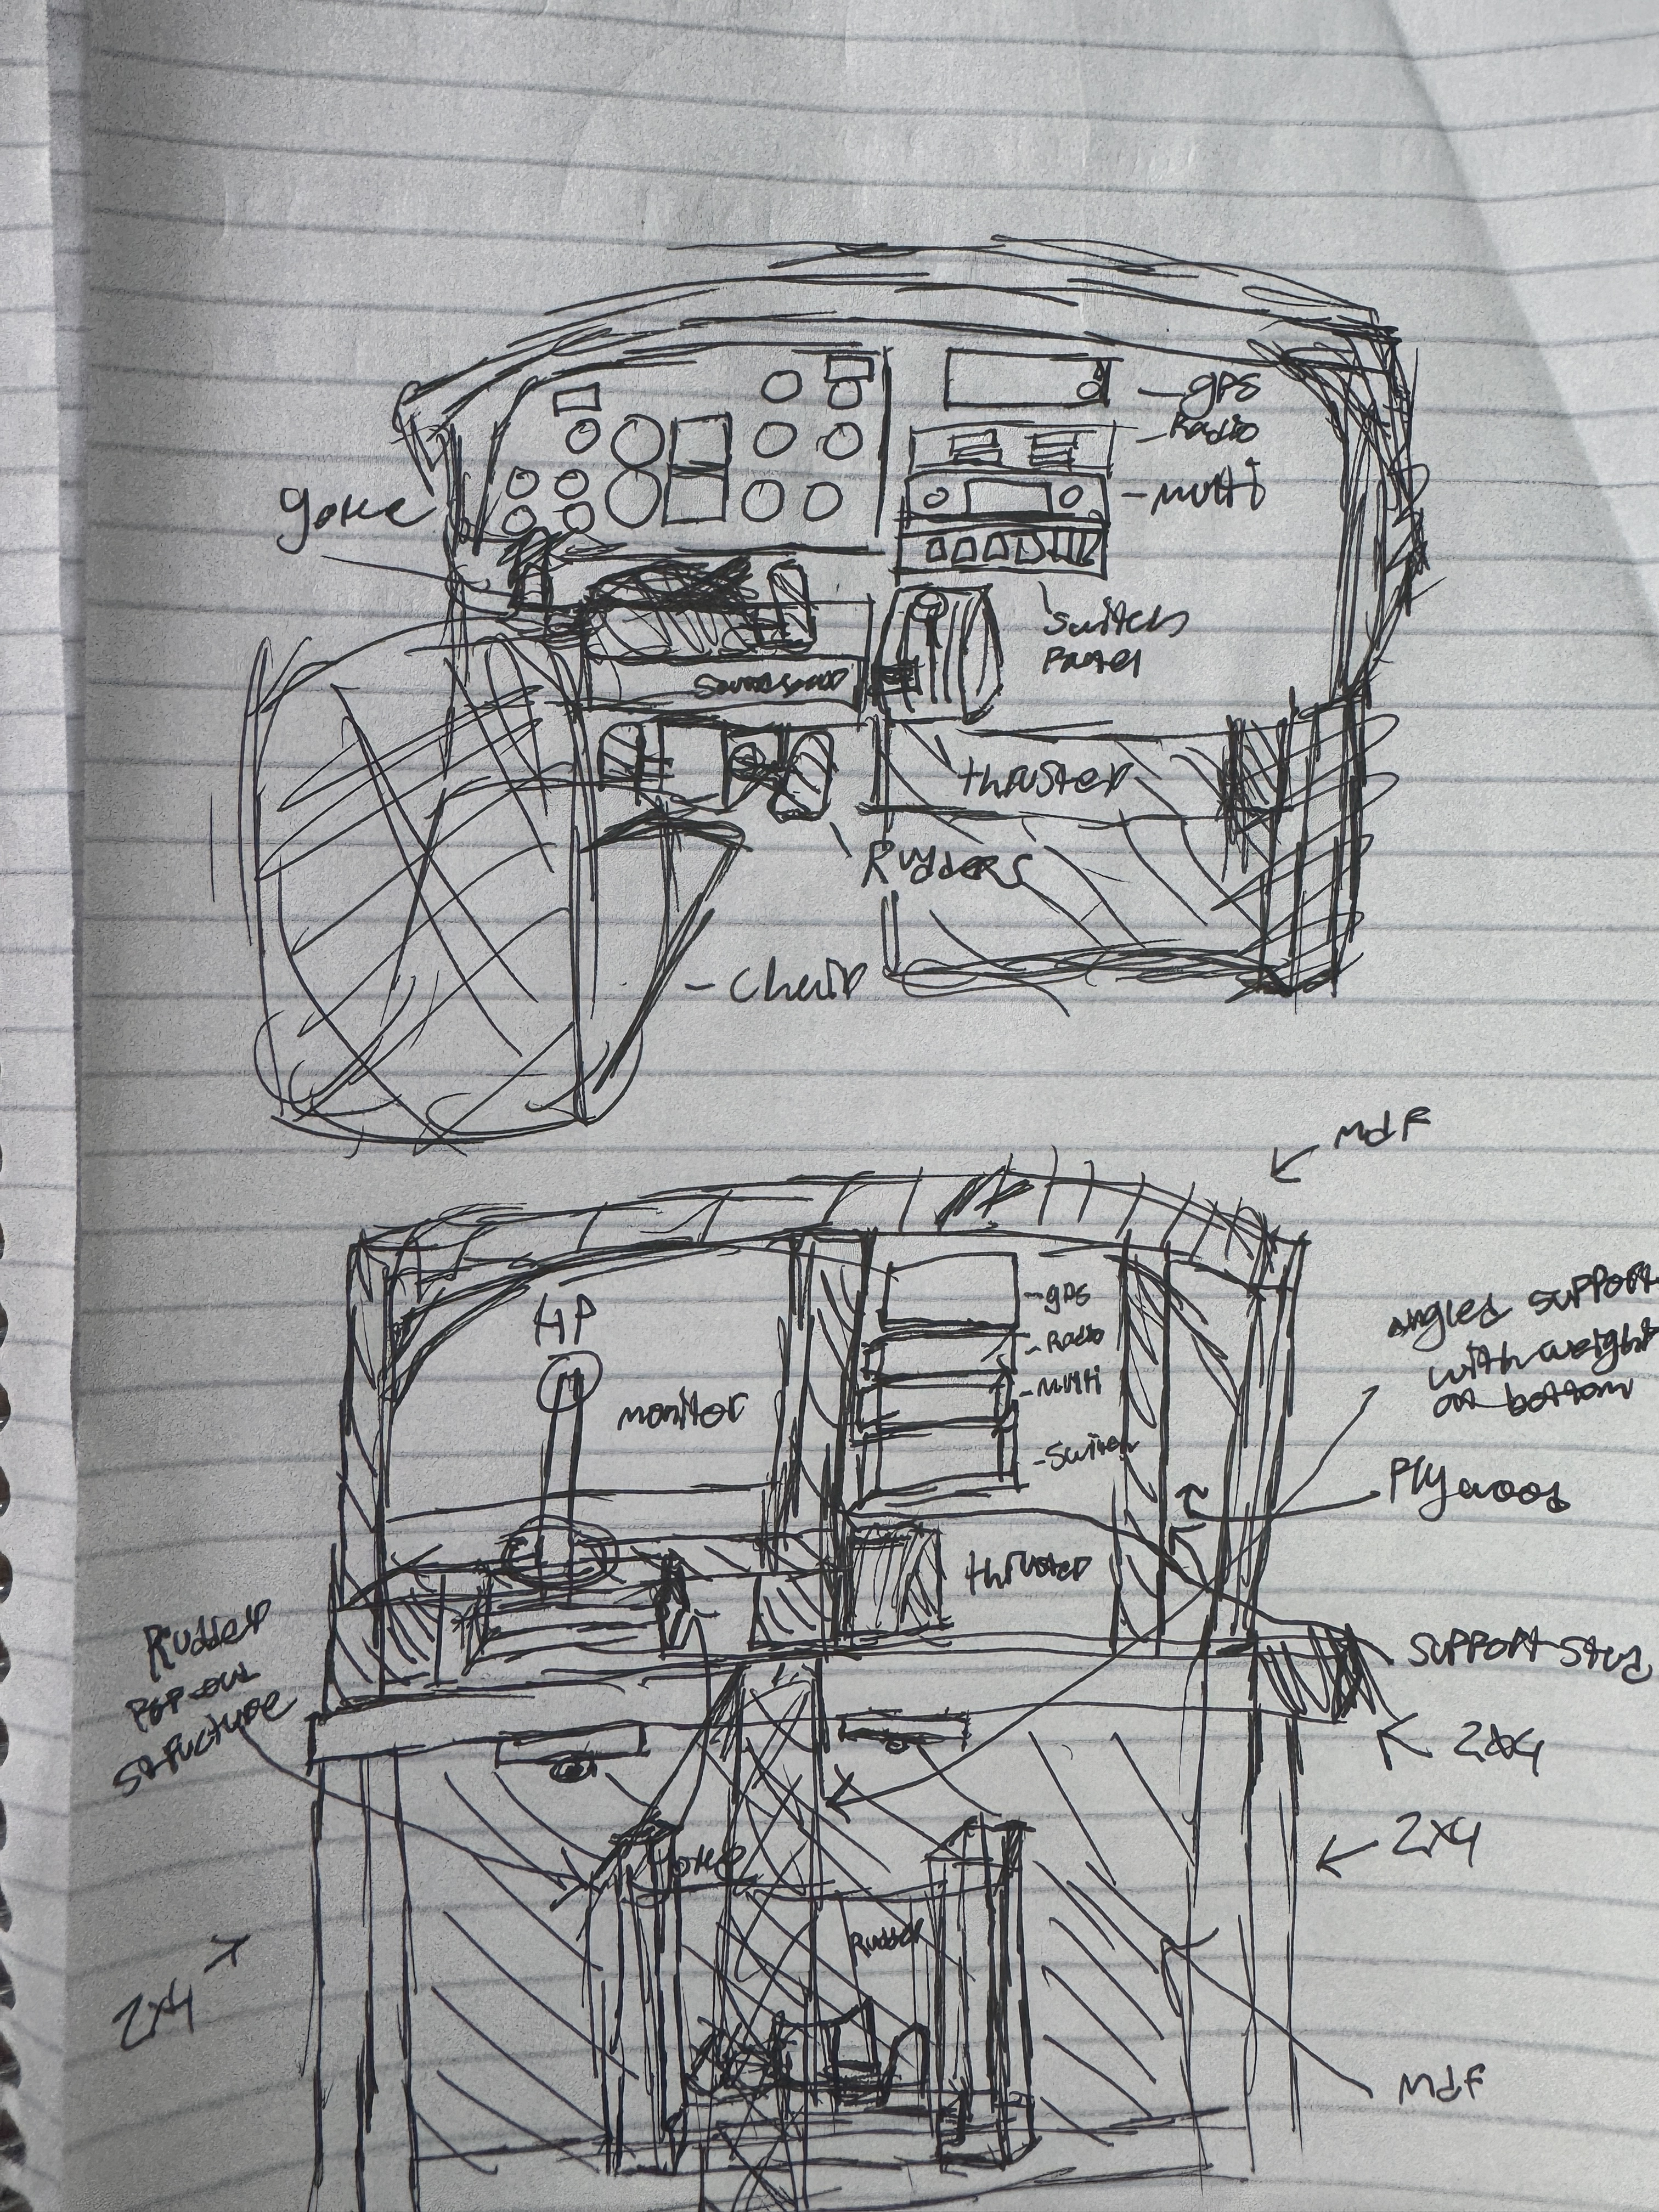 gps
Radio
multi
yoke
Switch
Panel
thruster
Rudders
Chair
mdf
gps
HP
Radio
multi
monitor
Switch
angled support
with weight
on bottom
Plywood
thruster
Rudder
Pop-out
structure
support stud
2x4
2x4
Rudder
2x4
mdf